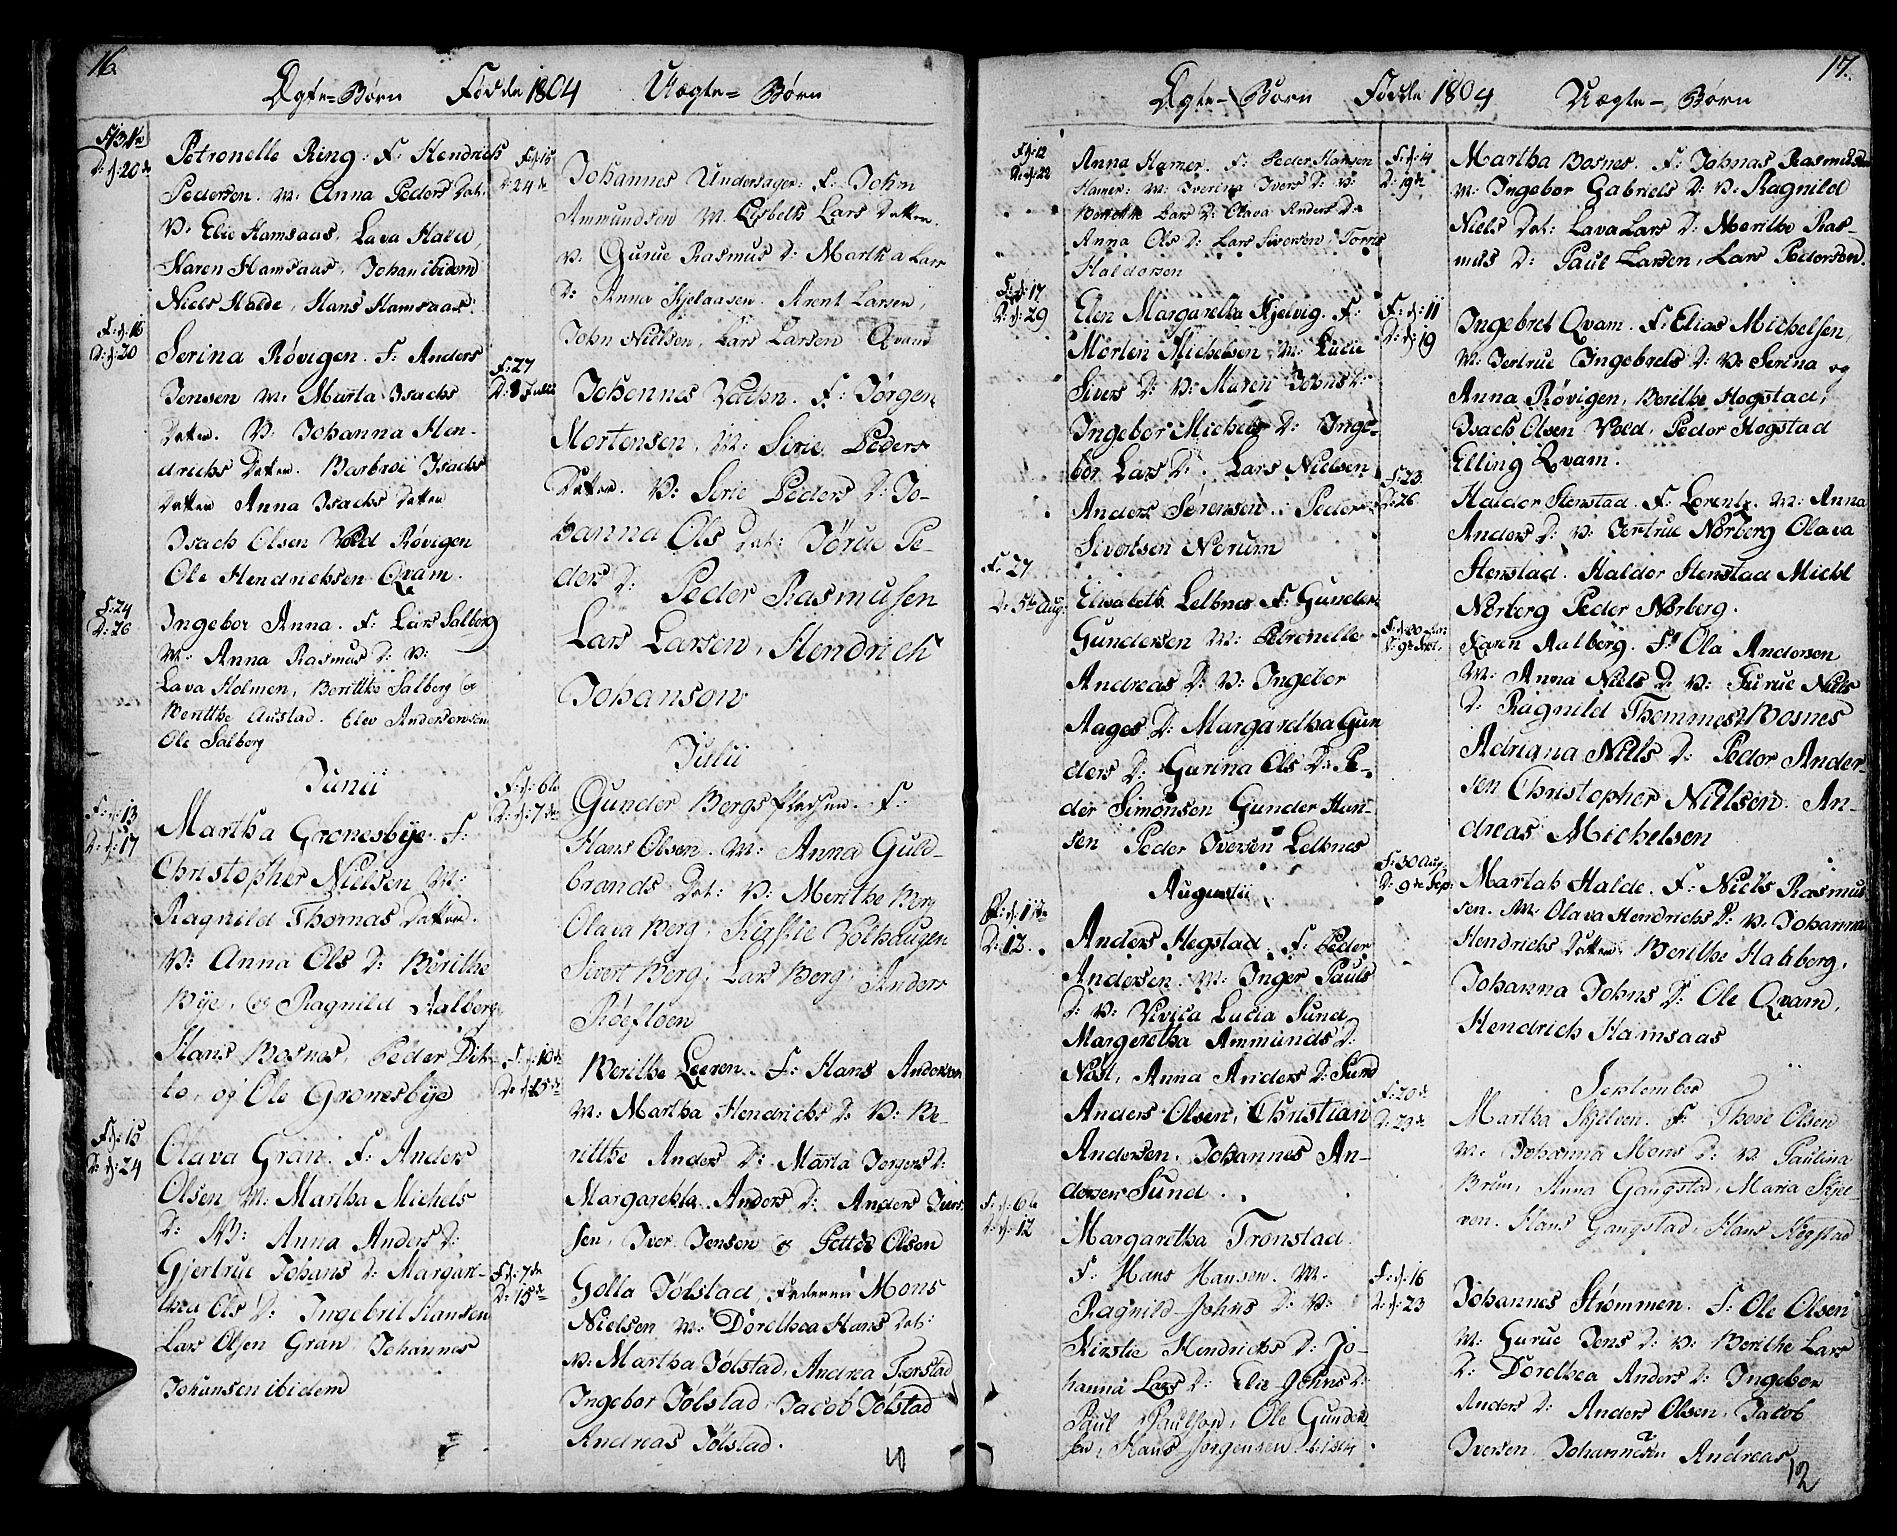 16.
Ægte-Børn Fødde 1804 Uægte-Børn
D: d: 20de
Petronelle Ring. F: Hendrich
Pedersen. M: Anna Peders Dat:
V: Elie Hamsaas, Lava Hald,
Karen Hamsaas, Johan ibidem
Niels Halde, Hans Hamsaas.
F: d: 16
D: d: 20
Serina Røvigen. F: Anders
Jensen M: Marta Isachs
Datter. V: Johanna Hen-
drichs Datter. Barbroe Isachs
Datter Anna Isachs Datter
Isach Olsen Vold Røvigen
Ole Hendrichsen Qvam.
F: 24
D: 26
Ingebor Anna. F: Lars Salberg
M: Anna Rasmus D: V:
Lava Holmen, Berithe Salberg og
Berithe Austad. Elev Andersen
Ole Salberg
Junii
F: d: 13
D: d: 17
Martha Gronesbye. F:
Christopher Nielsen M:
Ragnild Thomas Datter.
V: Anna Ols D: Berithe
Bye, og Ragnild Aalberg
Hans Bosnes, Peder Dit-
to, og Ole Gronesbye
F: d: 15
D: d: 24
Olava Gran. F: Anders
Olsen M: Martha Michels
D: V: Anna Anders D:
Gjertrue Johans D: Margare-
tha Ols D: Ingebril Hansen
Lars Olsen Gran, Johannes
Johansen ibidem
F: d: 15
D: 24de
Johannes Undersager. F: John
Ammundsen M: Lisbeth Lars Datter.
V: Gurue Rasmus D: Martha Lars
D: Anna Kjelaasen. Arent Larsen,
John Nielsen, Lars Larsen Qvam
F: 27
D: 8 Julii
Johannes Vathn. F: Jørgen
Mortensen, M: Sirie Peders
Datter. V: Serie Peders D: Jo-
hanna Ols Dat: Jørue Pe-
ders D: Peder Rasmusen
Lars Larsen, Hendrich
Johansen
Julii
F: d: 6te
D: d: 7de
Gunder Bergsfletsen. F:
Hans Olsen. M: Anna Guld-
brands Dat: V: Merithe Berg
Olava Berg, Kirstie Volhaugen
Sivert Berg, Lars Berg, Anders
Røefloen
F: d: 10de
D: d: 15de
Berithe Leeren. F: Hans Andersen
M: Martha Hendrichs D: V: Be-
rithe Anders D: Marta Jørgens D:
Margaretha Anders D: Anders Iver-
sen, Iver Jensen og Petter Olsen
F: d: 7de
D: 15de
Golla Jølstad, Faderen Mons
Nielsen M: Dorethea Hans Dat:
V: Martha Jølstad, Andrea Færstad
Ingebor Jølstad, Jacob Jølstad
Andreas Jølstad.
10
17.
Ægte-Børn Fødde 1804 Uægte-Børn
F: d: 12
D: d: 22
Anna Hamer. F: Peder Hansen
Hamer: M: Iverina Ivers D: V:
Berethe Lars D: Olava Anders D:
Anna Ols D: Lars Siversen, Torris
Haldorsen
F: d: 17
D: d: 29
Elen Margaretha Kjelvig. F:
Morten Michelsen, M: Lucie
Sivers D: V: Maren Johns D:
Ingebor Michels D: Inge-
bor Lars D: Lars Nielsen
Anders Sørensen. Peder
Sivertsen Norum
F: 27
D: 5te Aug:
Elisabeth Lelknes F: Gunder
Gundersen M: Petronelle
Andreas D: V: Ingebor
Aages D: Margaretha Gun
ders D: Gurina Ols D: Pe-
der Simonsen Gunder Han-
sen Peder Iversen Lelknes
Augustii
D: 12.
Anders Hegstad. F: Peder
Andersen. M: Inger Pauls
D: V: Vivica Lucia Sund
Margeretha Ammunds D:
Nøst, Anna Anders D: Sund
Anders Olsen, Christian
Andersen. Johannes An-
dersen Sund.
F: d: 6te
D: d: 12
Margaretha Tronstad.
F: Hans Hansen. M:
Ragnild Johns D: V:
Kirstie Hendrichs D: Jo-
hanna Lars D: Elie Johns D:
Paul Paulsen, Ole Gunder-
sen, Hans Jørgensen
F: d: 4
D: 19de
Martha Bosnes. F: Johnas Rasmusen
M: Ingebor Gabriels D: V: Ragnild
Niels Dat: Lava Lars D: Merithe Ras-
mus D: Paul Larsen, Lars Pedersen.
F: d: 11
D: d: 19
Ingebret Qvam. F: Elias Michelsen
M: Jertrue Ingebrets D: V: Serina og
Anna Røvigen, Berithe Hogstad,
Isach Olsen Vold, Peder Hogstad
Elling Qvam.
F: 23
D: 26
Haldor Stenstad. F: Lorentz. M: Anna
Anders D: V: Jertrue Norberg Olava
Stenstad. Haldor Stenstad Michl
Norberg Peder Norberg.
D: 9de Sept.
Karen Aalberg. F: Ola Andersen
M: Anna Niels D: V: Gurue Niels
D: Ragnild Thommes: Bosnes
Adriana Niels D: Peder Ander-
sen Christopher Nielsen. An-
dreas Michelsen
F: 30 Aug:
D: 9de Sep:
Martah Halde. F: Niels Rasmus
sen. M: Olava Hendrichs D: V: Johanna
Hendrichs Datter, Berithe Halsberg,
Johanna Johns D: Ole Qvam,
Hendrich Hamsaas
September
F: 20de
D: 23de
Martha Skjelven. F: Thore Olsen
M: Johanna Mons D: V: Paulina
Bruun, Anna Gangstad, Maria Skjel-
ven. Hans Gangstad, Hans Hegstad
F: d: 16
D: d: 23
Johannes Strømmen. F: Ole Olsen
M: Gurue Jens D: V: Berithe Lars
D: Dorethea Anders D: Ingebor
Anders D: Anders Olsen, Jacob
Iversen. Johannesen Andreas
12